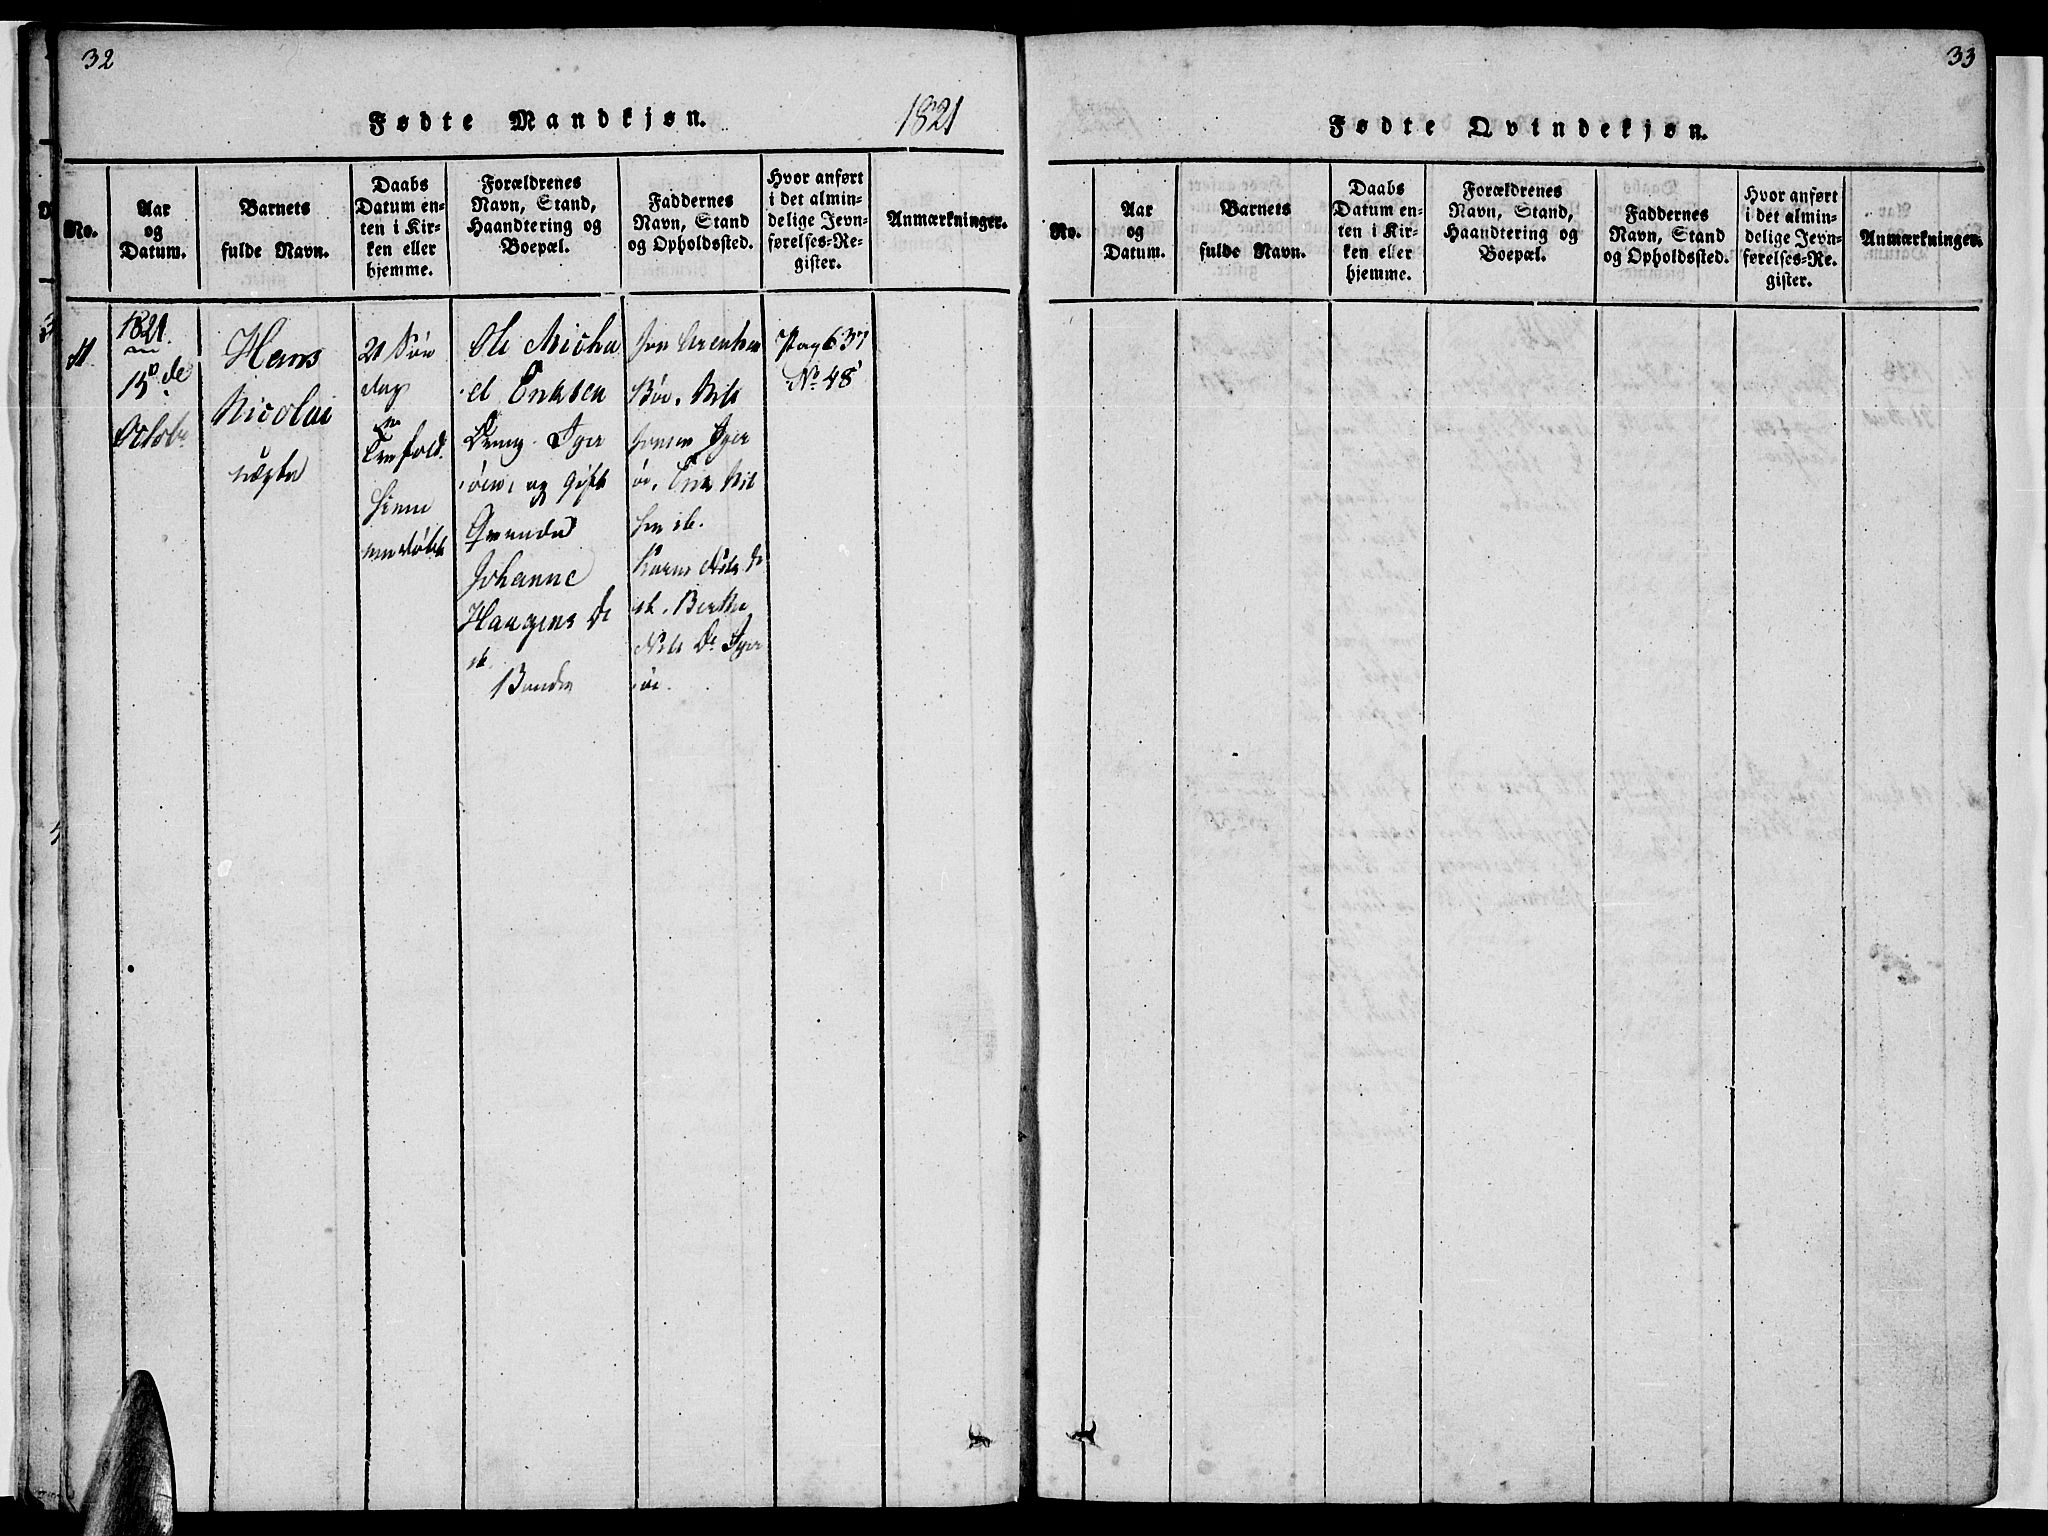 32
Fødte Mandkjøn.
1821
No.
Aar
og
Datum.
Barnets
fulde Navn.
Daabs
Datum en-
ten i Kir-
ken eller
hjemme.
Forældrenes
Navn, Stand,
Haandtering og
Boepæl.
Faddernes
Navn, Stand
og Opholdssted.
Hvor anført
i det almin-
delige Jevn-
førelses-Re-
gister.
Anmærkninger.
1821.
15de
Octobr
Hans
Nicolai
uægte
21 Søn
dag
Trefold.
hjemme
døbt
Ole Micha
el Eriksen
Dreng
og Gift
Johanne
Haagens D
ib.
Bønder
Bøe. Nils
Jonsen
Erik Nil
sen ib.
Karen Nils D
ib. Berthe
Nils D.
Pag 637
No 48
33
Fødte Qvindekjøn.
No.
Aar
og
Datum.
Barnets
fulde Navn.
Daabs
Datum en-
ten i Kir-
ken eller
hjemme.
Forældrenes
Navn, Stand,
Haandtering og
Boepæl.
Faddernes
Navn, Stand
og Opholdssted.
Hvor anført
i det almin-
delige Jevn-
førelses-Re-
gister.
Anmærkninger.